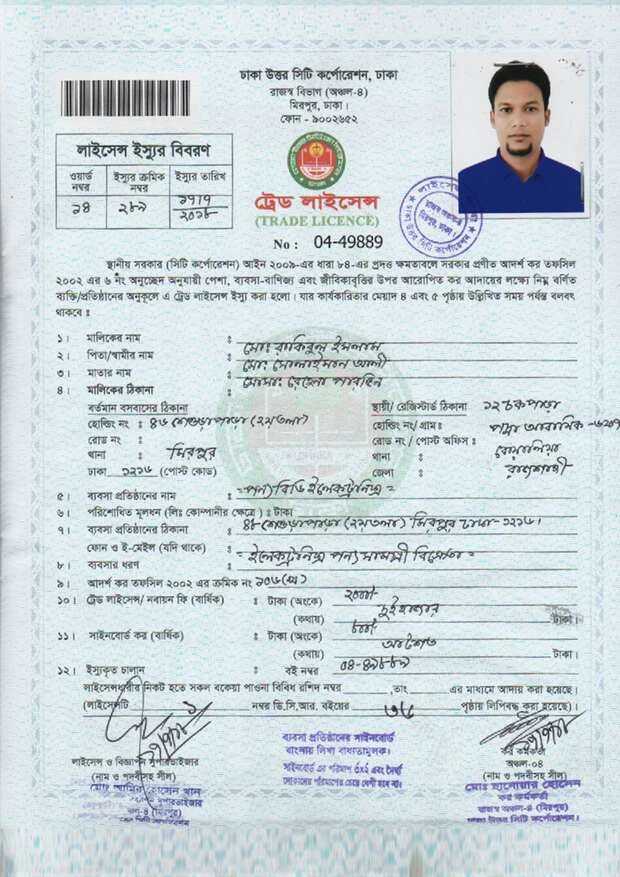 ঢাকা উত্তর সিটি কর্পোরেশন, ঢাকা
রাজস্ব বিভাগ (অঞ্চল-৪)
মিরপুর, ঢাকা।
ফোন - ৯০০২৬৫২
লাইসেন্স ইস্যুর বিবরণ
ওয়ার্ড নম্বর ইস্যুর ক্রমিক নম্বর ইস্যুর তারিখ
১৪ ২৮৯ ২০১৮
ট্রেড লাইসেন্স
(TRADE LICENCE)
No : 04-49889
স্থানীয় সরকার (সিটি কর্পোরেশন) আইন ২০০৯-এর ধারা ৮৪-এর প্রদত্ত ক্ষমতাবলে সরকার প্রণীত আদর্শ কর তফসিল
২০০২ এর ৬ নং অনুচ্ছেদ অনুযায়ী পেশা, ব্যবসা-বাণিজ্য এবং জীবিকাবৃত্তির উপর আরোপিত কর আদায়ের লক্ষ্যে নিম্ন বর্ণিত
ব্যক্তি/প্রতিষ্ঠানের অনুকূলে এ ট্রেড লাইসেন্স ইস্যু করা হলো। যার কার্যকারিতার মেয়াদ ৪ এবং ৫ পৃষ্ঠায় উল্লিখিত সময় পর্যন্ত বলবৎ
থাকবে ঃ
১। মালিকের নাম ঃ মোঃ রাকিবুল ইসলাম
২। পিতা/স্বামীর নাম ঃ মোঃ সোলাইমান আলী
৩। মাতার নাম ঃ মোসাঃ রেহেনা পারভিন
৪। মালিকের ঠিকানা ঃ
বর্তমান বসবাসের ঠিকানা স্থায়ী/ রেজিস্টার্ড ঠিকানা
হোল্ডিং নং ঃ ৪৬ শেওড়াপাড়া (২য়তলা) হোল্ডিং নং/ গ্রাম ঃ পদ্মা আবাসিক -৬২০৭
রোড নং ঃ রোড নং / পোস্ট অফিস ঃ
থানা ঃ মিরপুর থানা ঃ বোয়ালিয়া
ঢাকা ১২১৬ (পোস্ট কোড) জেলা ঃ রাজশাহী
৫। ব্যবসা প্রতিষ্ঠানের নাম ঃ = পন্যবিডি ইলেকট্রনিক্স =
৬। পরিশোধিত মূলধন (লিঃ কোম্পানীর ক্ষেত্রে) ঃ টাকা
৭। ব্যবসা প্রতিষ্ঠানের ঠিকানা ঃ শেওড়াপাড়া (২য়তলা) মিরপুর ঢাকা-১২১৬।
ফোন ও ই-মেইল (যদি থাকে)
৮। ব্যবসার ধরণ ঃ = ইলেকট্রনিক্স পন্য সামগ্রী বিক্রেতা =
৯। আদর্শ কর তফসিল ২০০২ এর ক্রমিক নং
১০। ট্রেড লাইসেন্স/ নবায়ন ফি (বার্ষিক) ঃ টাকা (অংকে) ২০০০/-
(কথায়) দুই হাজার টাকা।
১১। সাইনবোর্ড কর (বার্ষিক) ঃ টাকা (অংকে) ৮০০/-
(কথায়) আটশত টাকা।
১২। ইস্যুকৃত চালান ঃ বই নম্বর ০৪-৪৯৮৮৯
লাইসেন্সধারীর নিকট হতে সকল বকেয়া পাওনা বিবিধ রশিদ নম্বর ,তাং এর মাধ্যমে আদায় করা হয়েছে।
(লাইসেন্সটি নম্বর ডি.সি.আর. বইয়ের ৩৬ পৃষ্ঠায় লিপিবদ্ধ করা হয়েছে)।
ব্যবসা প্রতিষ্ঠানের সাইনবোর্ড
বাংলায় লিখা বাধ্যতামূলক।
লাইসেন্স ও বিজ্ঞাপন সুপারভাইজার
(নাম ও পদবীসহ সীল)
কর কর্মকর্তা
অঞ্চল-০৪
(নাম ও পদবীসহ সীল)
কর কর্মকর্তা
রাজস্ব অঞ্চল-৪ (মিরপুর)
ঢাকা উত্তর সিটি কর্পোরেশন।